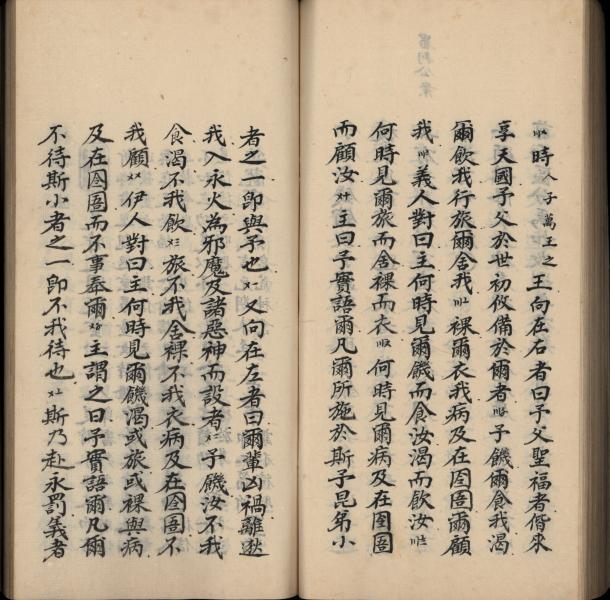 時人子萬王之王向在右者曰予父聖福者偕來
享天國予父於世初攸備於爾者予饑爾食我渴
爾飲我行旅爾舍我裸爾衣我病及在囹圄爾顧
我義人對曰主何時見爾饑而食汝渴而飲汝
何時見爾旅而舍裸而衣何時見爾病及在囹圄
而顧汝主曰予實語爾凡爾所施於斯予昆弟小
者之一即與予也又向在左者曰爾輩凶禍離逖
我入永火為邪魔及諸惡神而設者予饑汝不我
食渴不我飲旅不我舍裸不我衣病及在囹圄不
我顧伊人對曰主何時見爾饑渴或旅或裸與病
及在囹圄而不事奉爾主謂之曰予實語爾凡爾
不待斯小者之一即不我待也斯乃赴永罰義者